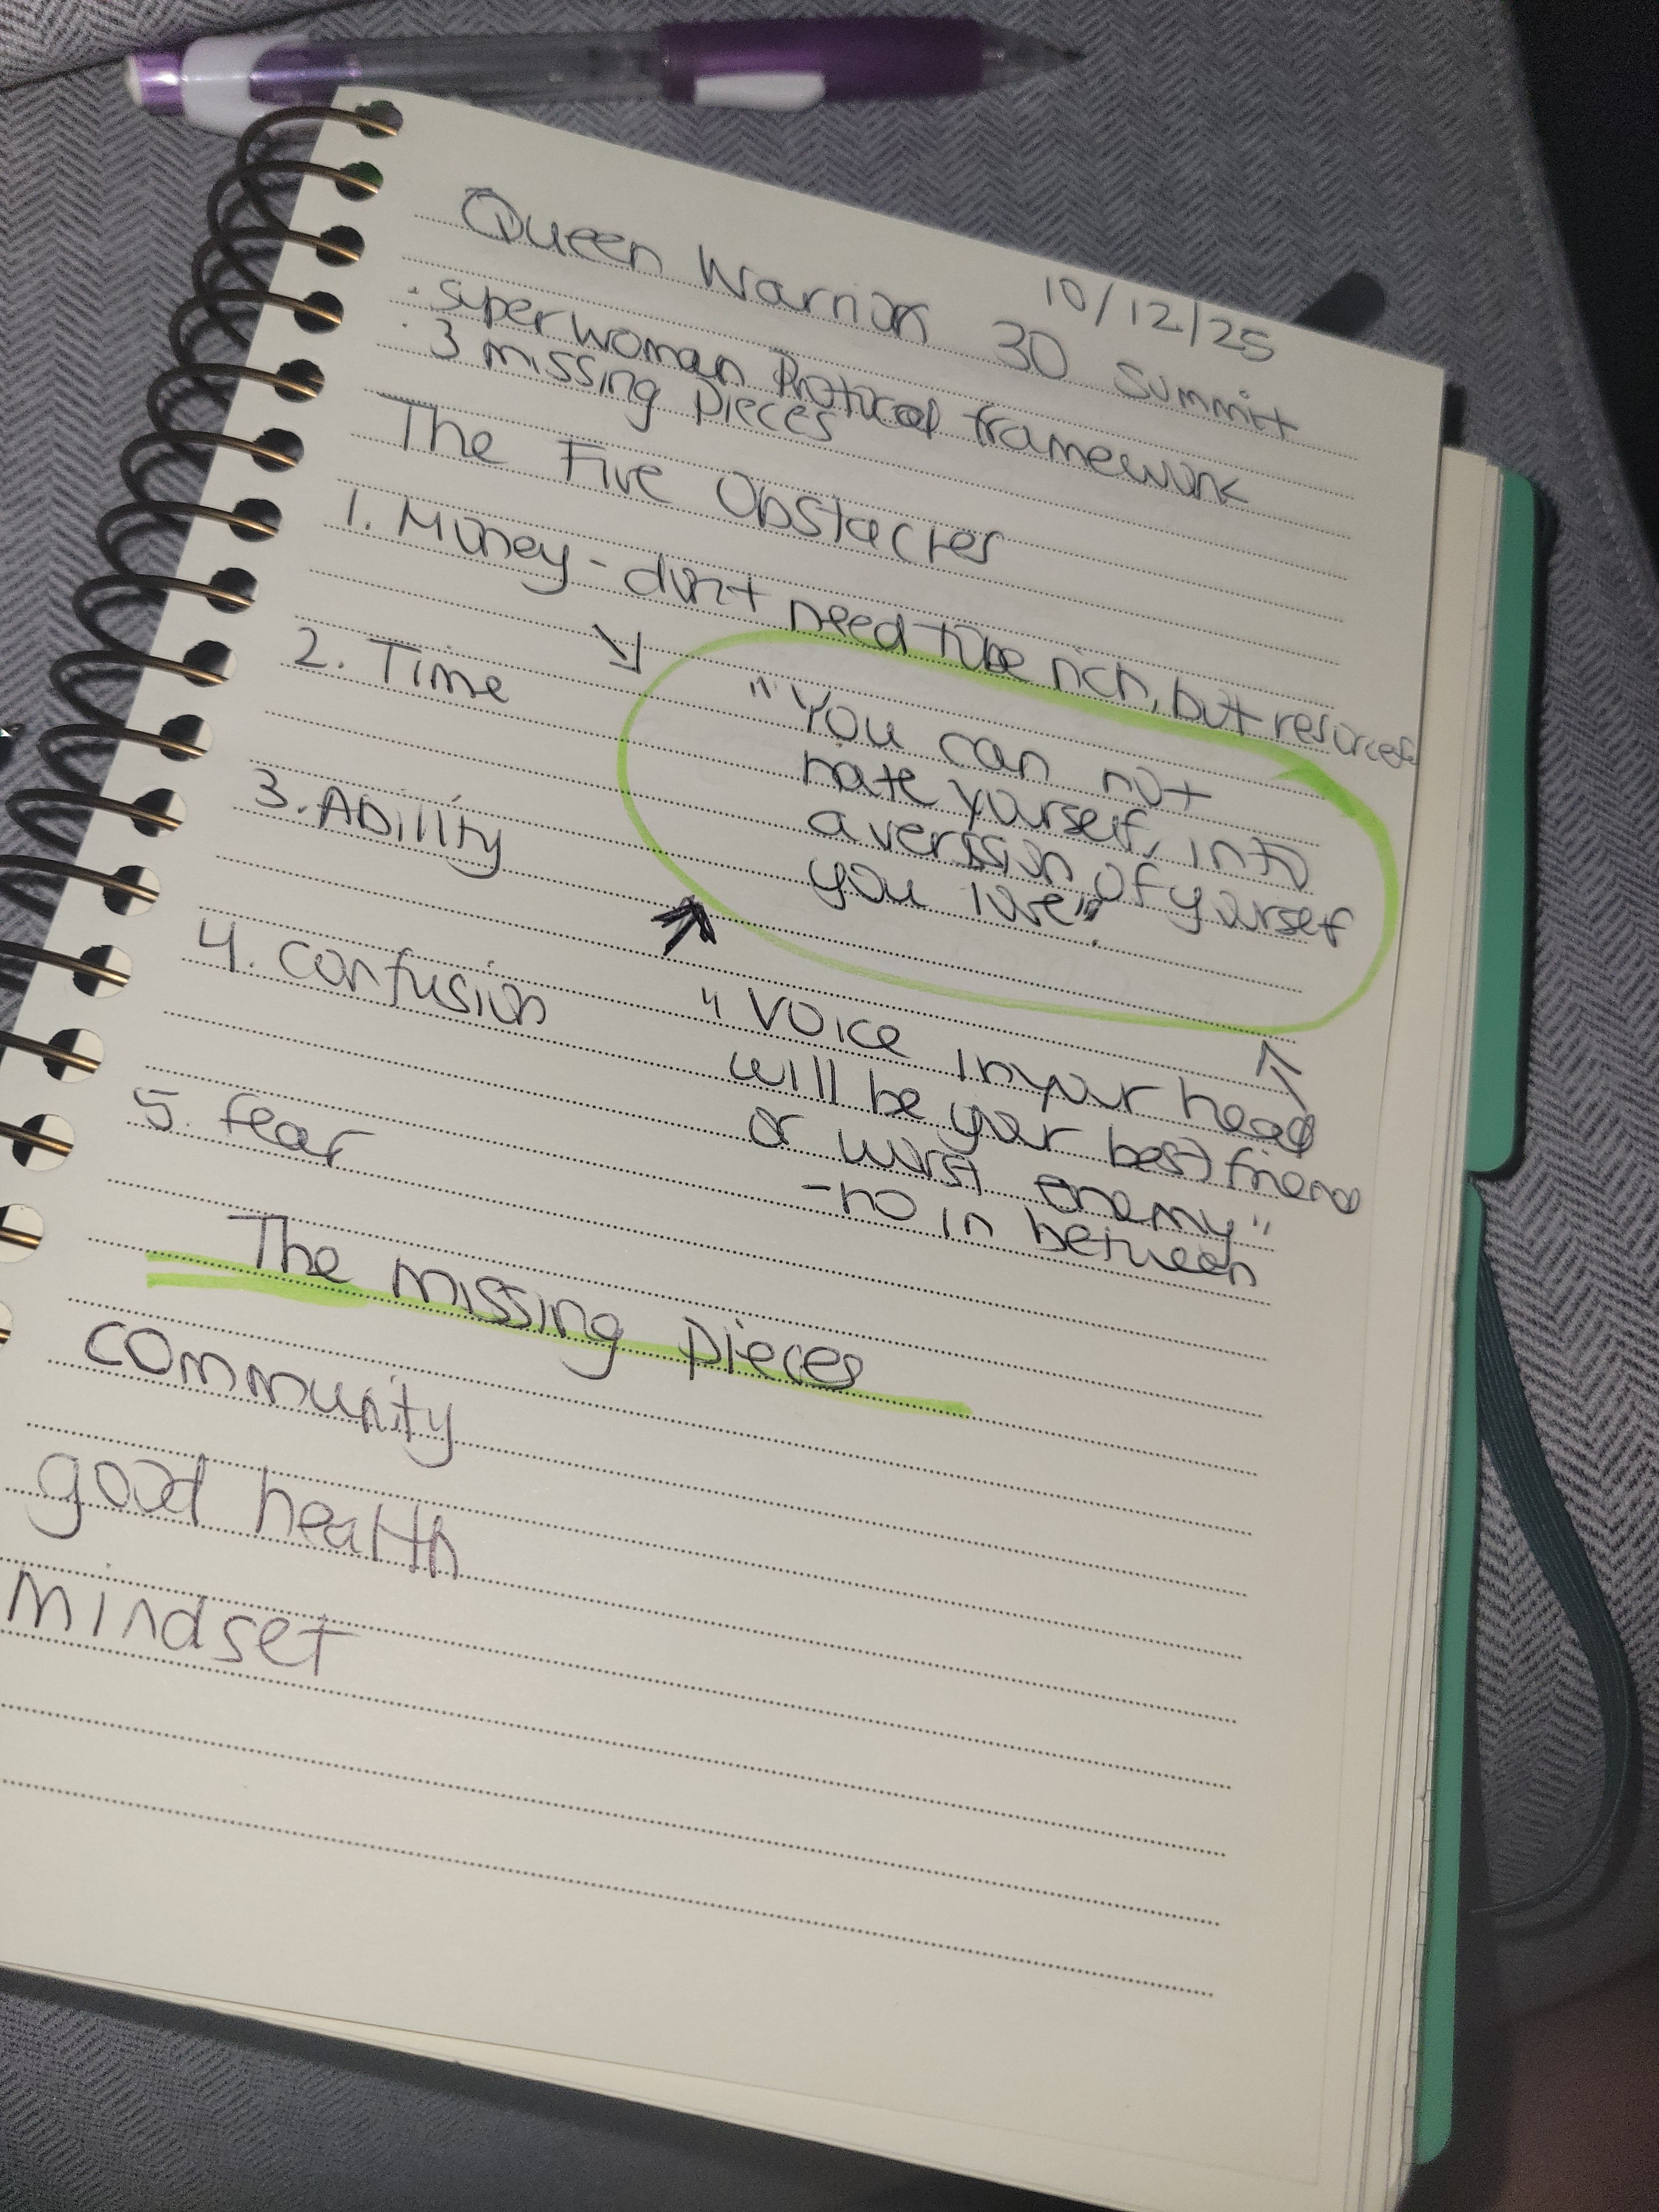 10/12/25
Queen Warrior 30 Summit
. superwoman Protocol framework
. 3 missing pieces
The Five Obstacles
1. Money - don't need to be rich, but
2. Time
"You can not
hate yourself, into
a verssion of yourself
you love".
3. Ability
4. confusion
"Voice in your head
will be your best friend
or worst enemy"
- no in between
5. fear
The missing pieces
community
good health
mindset